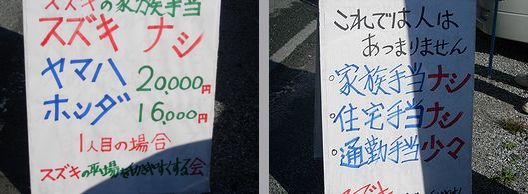 スズキの家族手当
スズキ ナシ
ヤマハ 20,000円
ホンダ 16,000円
1人目の場合
スズキの職場を働きやすくする会
これでは人は
あつまりません
○家族手当ナシ
○住宅手当ナシ
○通勤手当少マ